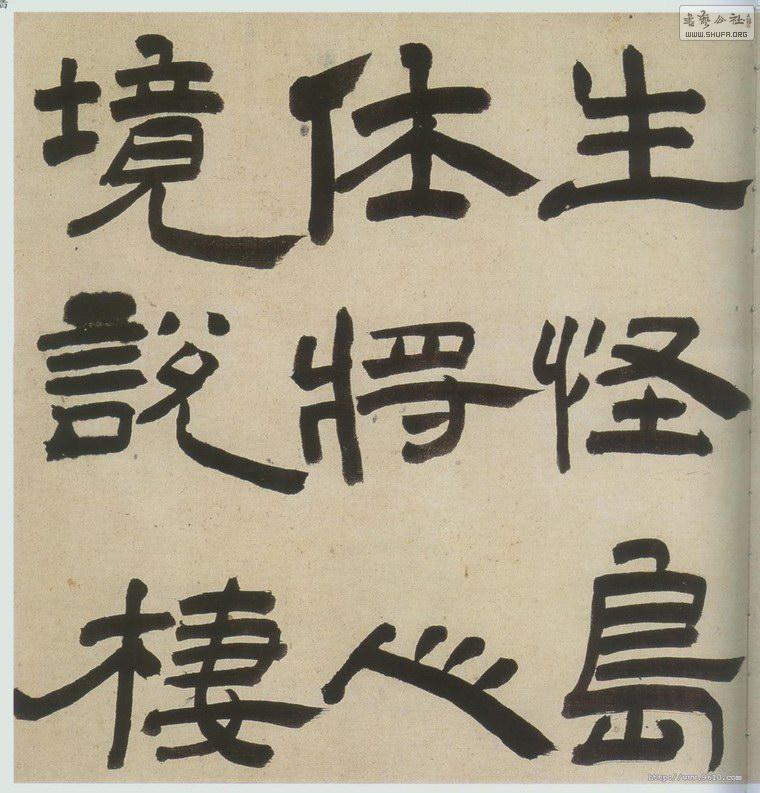 生怪島
休將心
境說棲
书艺公社
WWW.SHUFA.ORG
http://www.9610.com